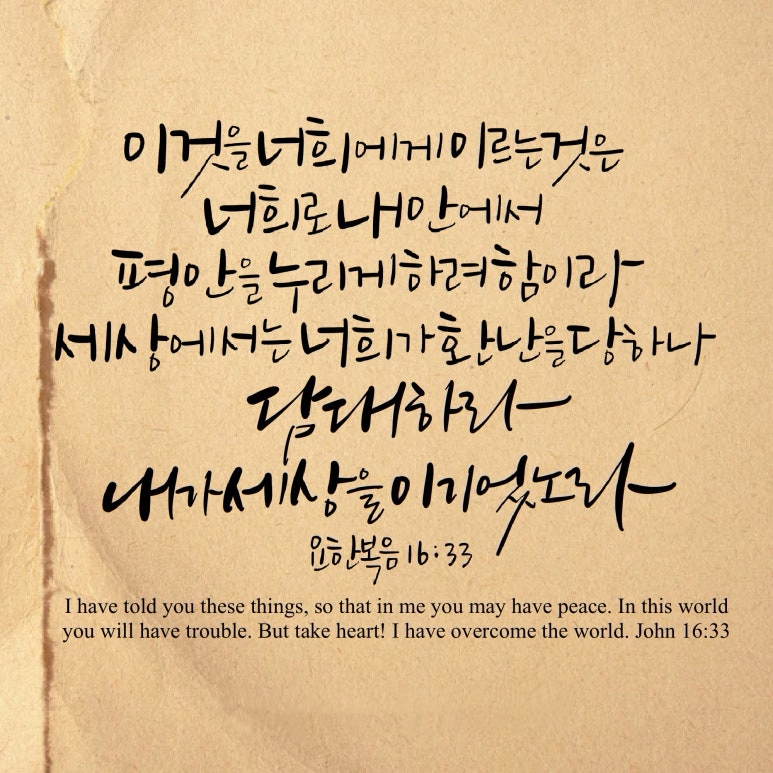 이것을 너희에게 이르는 것은
너희로 내 안에서
평안을 누리게 하려 함이라
세상에서는 너희가 환난을 당하나
담대하라
내가 세상을 이기었노라
요한복음 16:33
I have told you these things, so that in me you may have peace. In this world
you will have trouble. But take heart! I have overcome the world. John 16:33